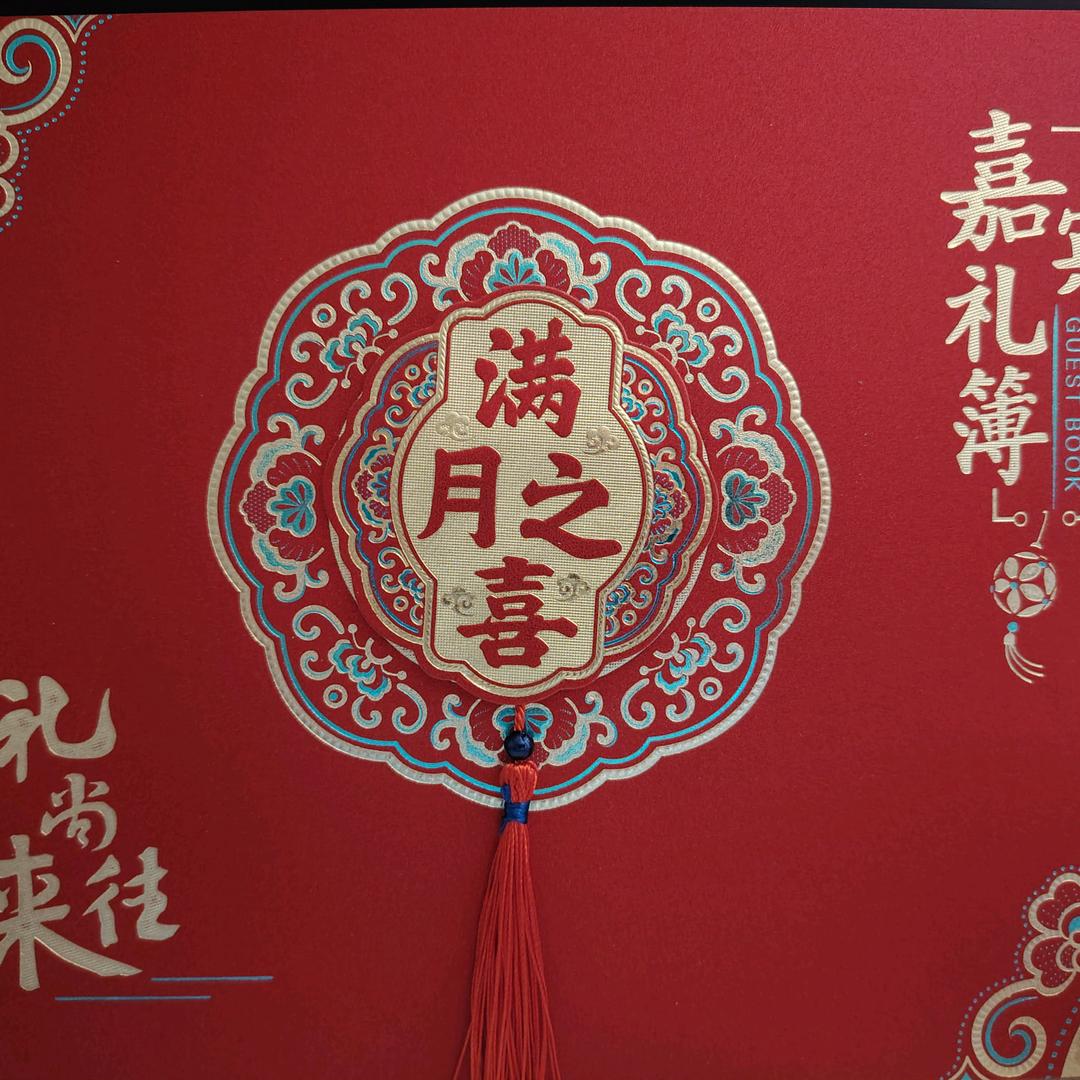 嘉礼簿」
GUEST BOOK
满
月之
喜
礼尚往来